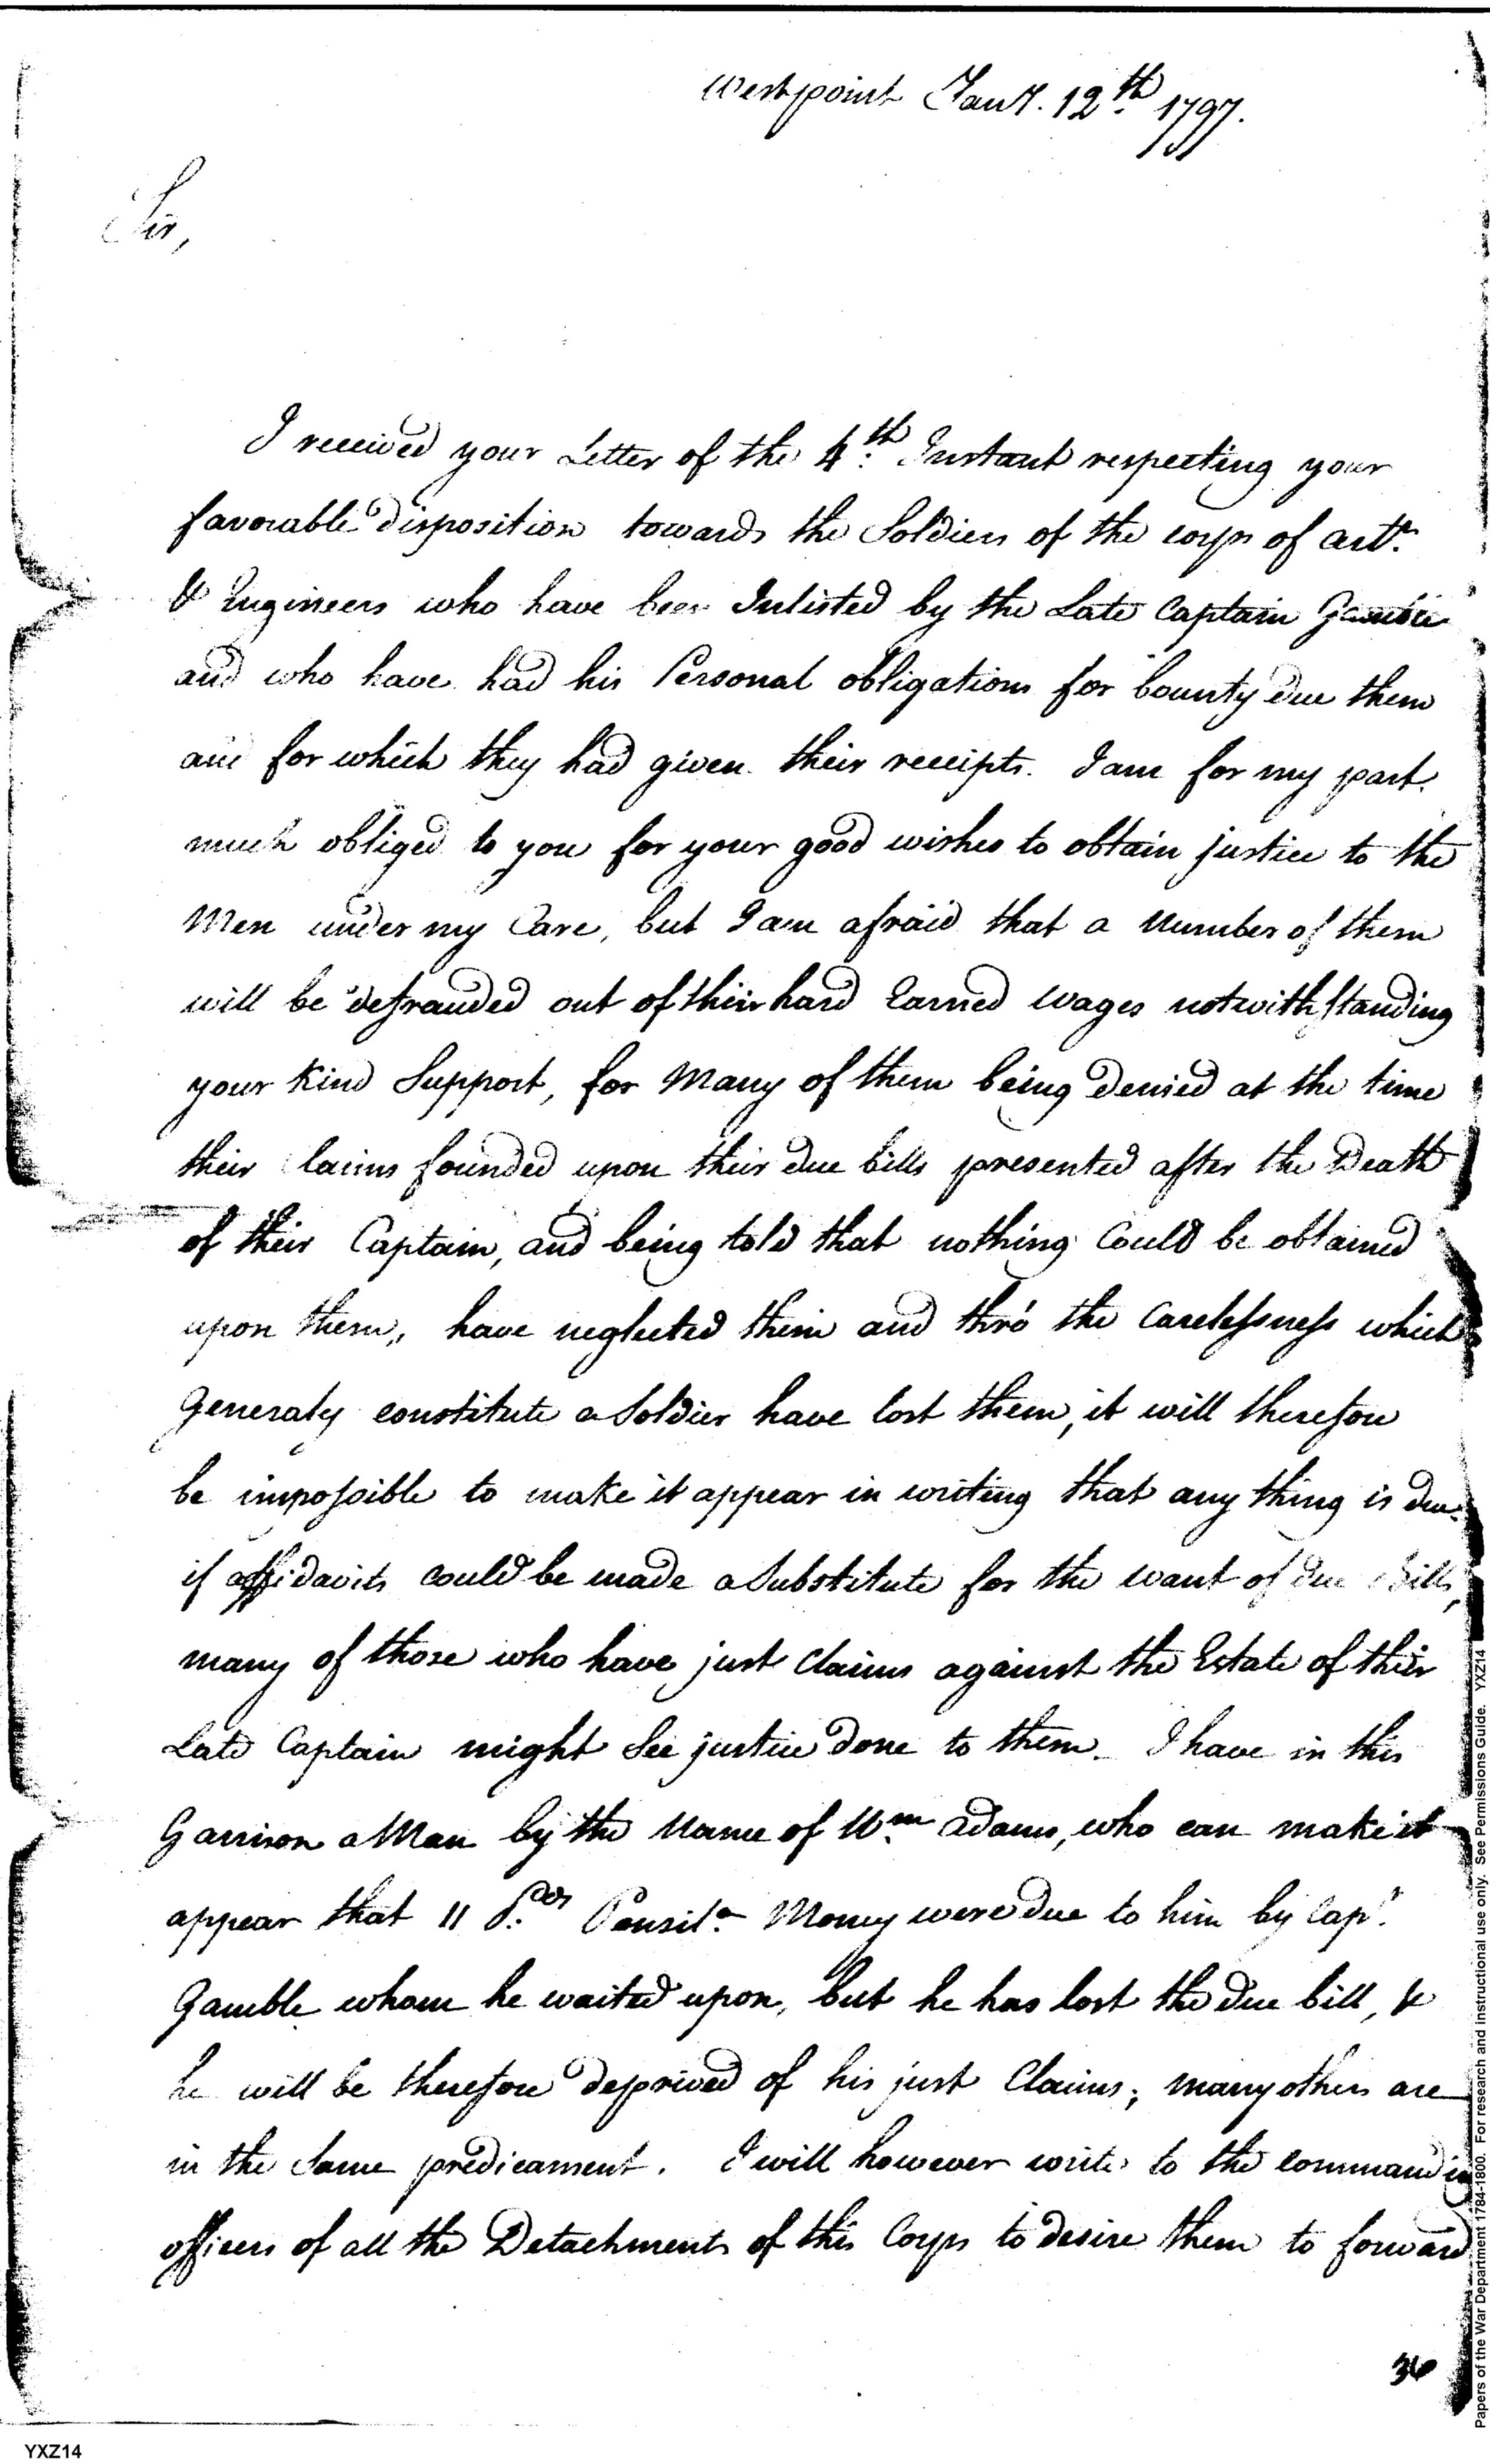 Westpoint Jany. 12th 1797.
Sir,
I received your Letter of the 4th Instant respecting your
favorable disposition towards the Soldiers of the corps of arty
& Engineers who have been Inlisted by the Late Captain Gamble
and who have had his Personal obligations for bounty due them
and for which they had given their receipts. I am for my part
much obliged to you for your good wishes to obtain justice to the
Men under my Care, but I am afraid that a Number of them
will be defrauded out of their hard Earned wages notwithstanding
your Kind Support, for Many of them being Denied at the time
their Claims founded upon their due bills presented after the Death
of their Captain, and being told that nothing Could be obtained
upon them, have neglected them and thro' the Carelessness which
Generaly constitute a Soldier have lost them, it will therefore
be impossible to make it appear in writing that any thing is due.
if affidavits could be made a Substitute for the want of due Bills,
many of those who have just Claims against the Estate of their
Late Captain might See justice done to them. I have in this
Garrison a Man by the Name of Wm. adams, who can make it
appear that 11 Drs Pensila Money were due to him by Capt.
Gamble whom he waited upon, but he has lost the due bill, &
he will be therefore deprived of his just Claims; many others are
in the Same predicament. I will however write to the commanding
officers of all the Detachments of this Corps to desire them to forward
36
YXZ14
Papers of the War Department 1784-1800. For research and instructional use only. See Permissions Guide. YXZ14